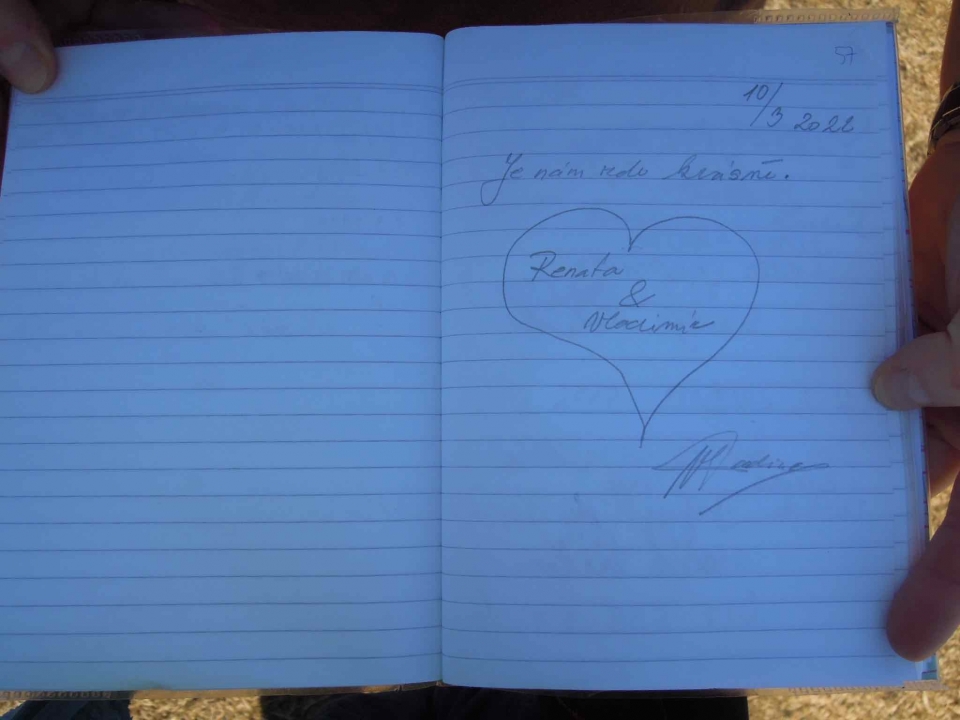 57
10/3 2022
Je nám zde krásně.
Renata
&
Vladimír